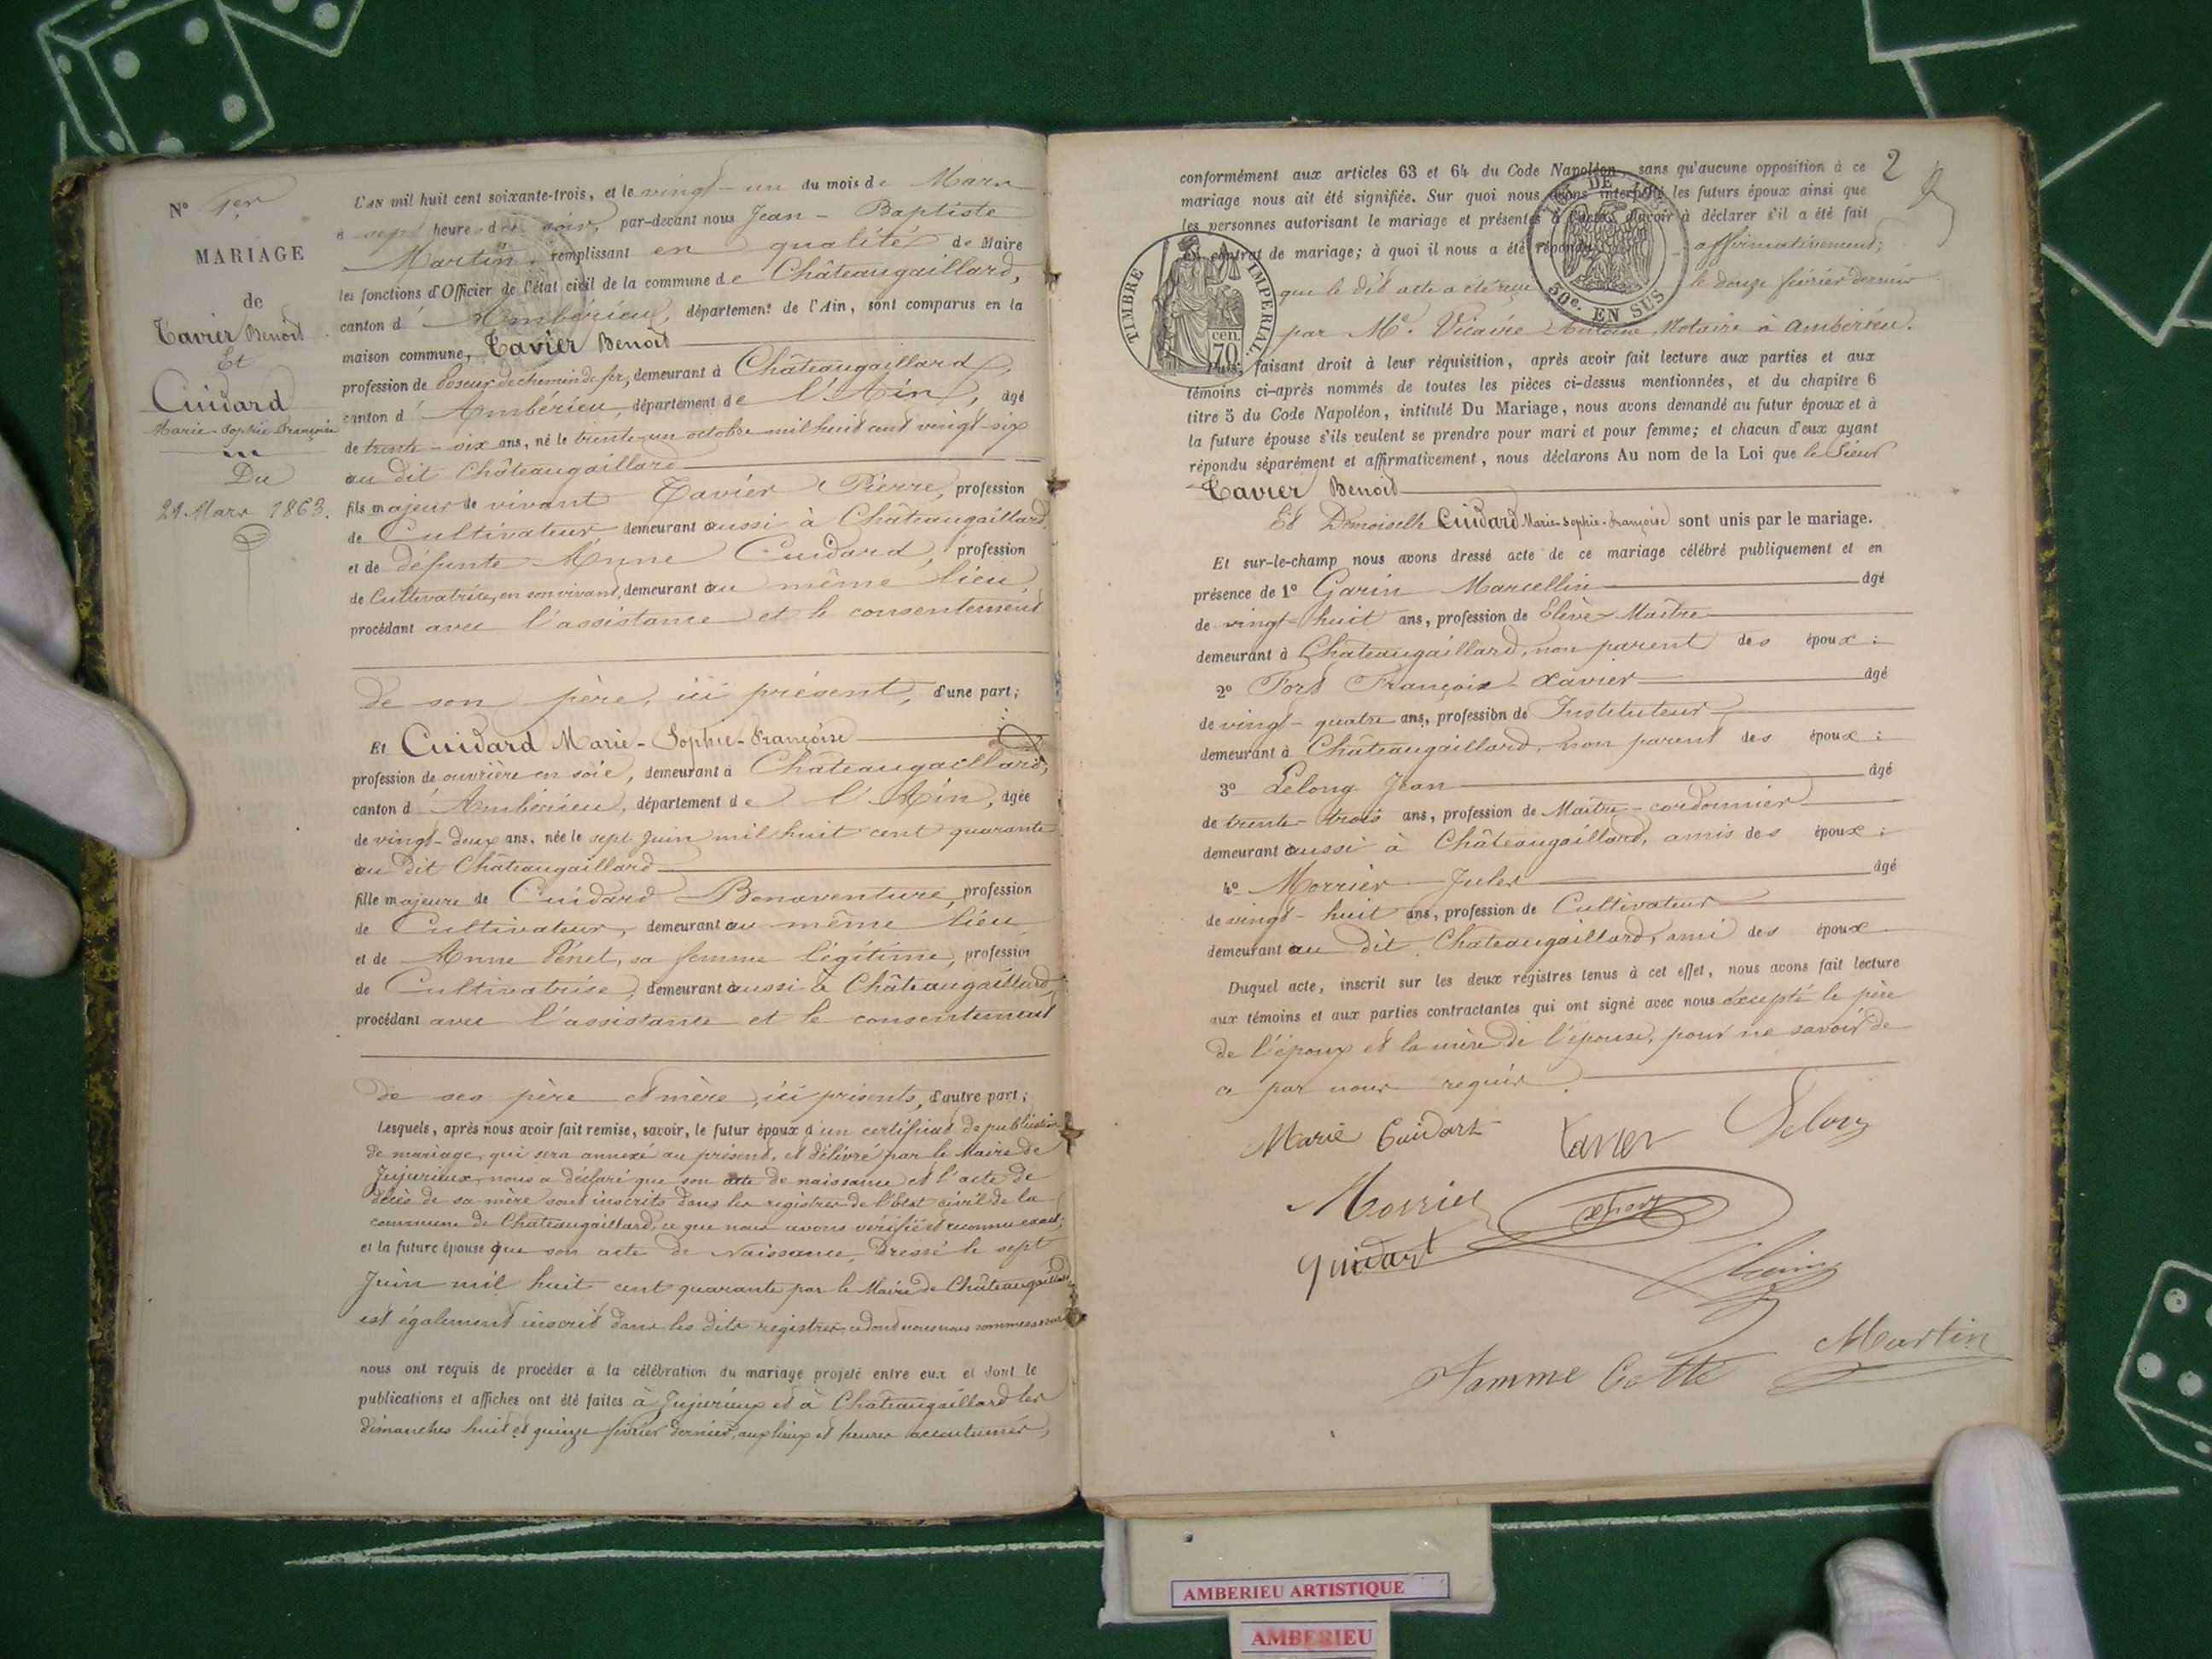 N° 1er
MARIAGE
de
Tavier Benoit
Et
Cuidard
Marie-Sophie-Françoise
Du
21 Mars 1863.
L'AN mil huit cent soixante-trois, et le vingt-un du mois de Mars
à sept heures du soir, par-devant nous Jean-Baptiste
Martin, remplissant en qualité de Maire
les fonctions d'Officier de l'état civil de la commune de Châteaugaillard,
canton d'Ambérieu, département de l'Ain, sont comparus en la
maison commune, Tavier Benoit
profession de Poseur de chemin de fer, demeurant à Châteaugaillard,
canton d'Ambérieu, département de l'Ain, âgé
de trente-six ans, né le trente-un octobre mil huit cent vingt-six
au dit Châteaugaillard
fils majeur de vivant Tavier Pierre, profession
de Cultivateur demeurant aussi à Châteaugaillard
et de défunte Anne Cuidard, profession
de Cultivatrice, en son vivant, demeurant au même lieu
procédant avec l'assistance et le consentement
de son père, ici présent, d'une part;
Et Cuidard Marie-Sophie-Françoise
profession de ouvrière en soie, demeurant à Châteaugaillard,
canton d'Ambérieu, département de l'Ain, âgée
de vingt-deux ans, née le sept Juin mil huit cent quarante
au dit Châteaugaillard
fille majeure de Cuidard Bonaventure, profession
de Cultivateur, demeurant au même lieu
et de Anne Pénet, sa femme légitime, profession
de Cultivatrice, demeurant aussi à Châteaugaillard,
procédant avec l'assistance et le consentement
de ses père et mère, ici présents, d'autre part;
Lesquels, après nous avoir fait remise, savoir, le futur époux d'un certificat de publication
de mariage, qui sera annexé au présent, et délivré par le Maire de
Jujurieux, nous a déclaré que son acte de naissance et l'acte de
décès de sa mère sont inscrits dans les registres de l'Etat civil de la
commune de Châteaugaillard, ce que nous avons vérifié et reconnu exact;
et la future épouse que son acte de Naissance, Dressé le sept
Juin mil huit cent quarante par le Maire de Châteaugaillard
est également inscrit dans les dits registres, ce dont nous nous sommes
nous ont requis de procéder à la célébration du mariage projeté entre eux et dont le
publications et affiches ont été faites à Jujurieux et à Châteaugaillard les
dimanches huit et quinze février dernier, aux lieux et heures accoutumés,
2
conformément aux articles 63 et 64 du Code Napoléon, sans qu'aucune opposition à ce
mariage nous ait été signifiée. Sur quoi nous avons interpellé les futurs époux ainsi que
les personnes autorisant le mariage et présentes à l'acte, d'avoir à déclarer s'il a été fait
un contrat de mariage; à quoi il nous a été répondu affirmativement;
que le dit acte a été reçu le douze février dernier
par Me. Vicaire Antoine, Notaire à Ambérieu.
TIMBRE IMPERIAL
cen. 70
50c. EN SUS
Puis, faisant droit à leur réquisition, après avoir fait lecture aux parties et aux
témoins ci-après nommés de toutes les pièces ci-dessus mentionnées, et du chapitre 6
titre 5 du Code Napoléon, intitulé Du Mariage, nous avons demandé au futur époux et à
la future épouse s'ils veulent se prendre pour mari et pour femme; et chacun d'eux ayant
répondu séparément et affirmativement, nous déclarons Au nom de la Loi que le Sieur
Tavier Benoit
Et Demoiselle Cuidard Marie-Sophie-Françoise sont unis par le mariage.
Et sur-le-champ nous avons dressé acte de ce mariage célébré publiquement et en
présence de 1° Garin Marcellin âgé
de vingt-huit ans, profession de Elève-Maître
demeurant à Châteaugaillard, non parent des époux:
2° Fort François-Xavier âgé
de vingt-quatre ans, profession de Instituteur
demeurant à Châteaugaillard, non parent des époux:
3° Lelong Jean âgé
de trente-trois ans, profession de Maître-cordonnier
demeurant aussi à Châteaugaillard, amis des époux:
4° Morrier Jules âgé
de vingt-huit ans, profession de Cultivateur
demeurant au dit Châteaugaillard, ami des époux
Duquel acte, inscrit sur les deux registres tenus à cet effet, nous avons fait lecture
aux témoins et aux parties contractantes qui ont signé avec nous excepté le père
de l'époux et la mère de l'épouse, pour ne savoir de
ce par nous requis.
Marie Cuidart Tavier Lelong
Morrier
guidart
Martin
AMBERIEU ARTISTIQUE
AMBERIEU